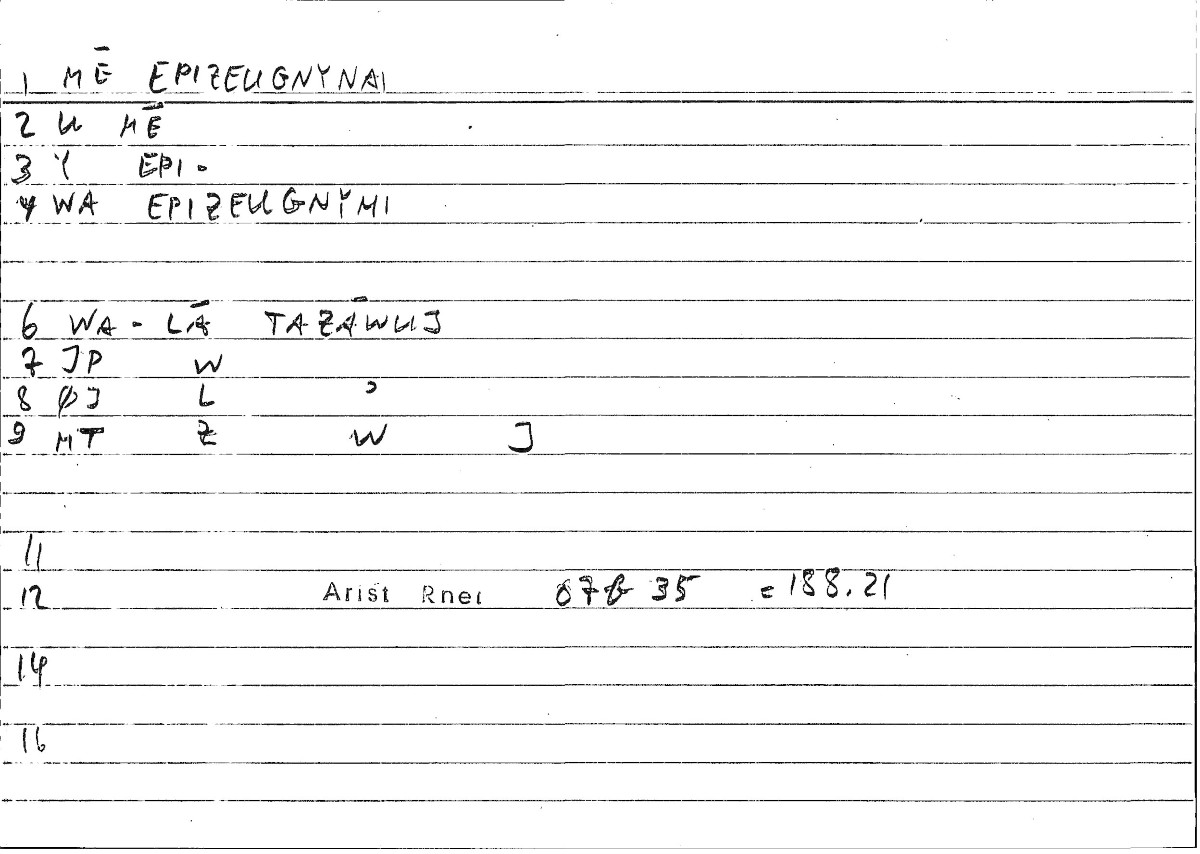 1 MĒ EPIZEUGNYNAI
2 U MĒ
3 Y EPI.
4 WA EPIZEUGNYMI
6 WA-LĀ TAZĀWUJ
7 JP W
8 ØJ L ɔ
9 MT Z W J
11
12 Arist Rher 07b 35 = 188.21
14
16